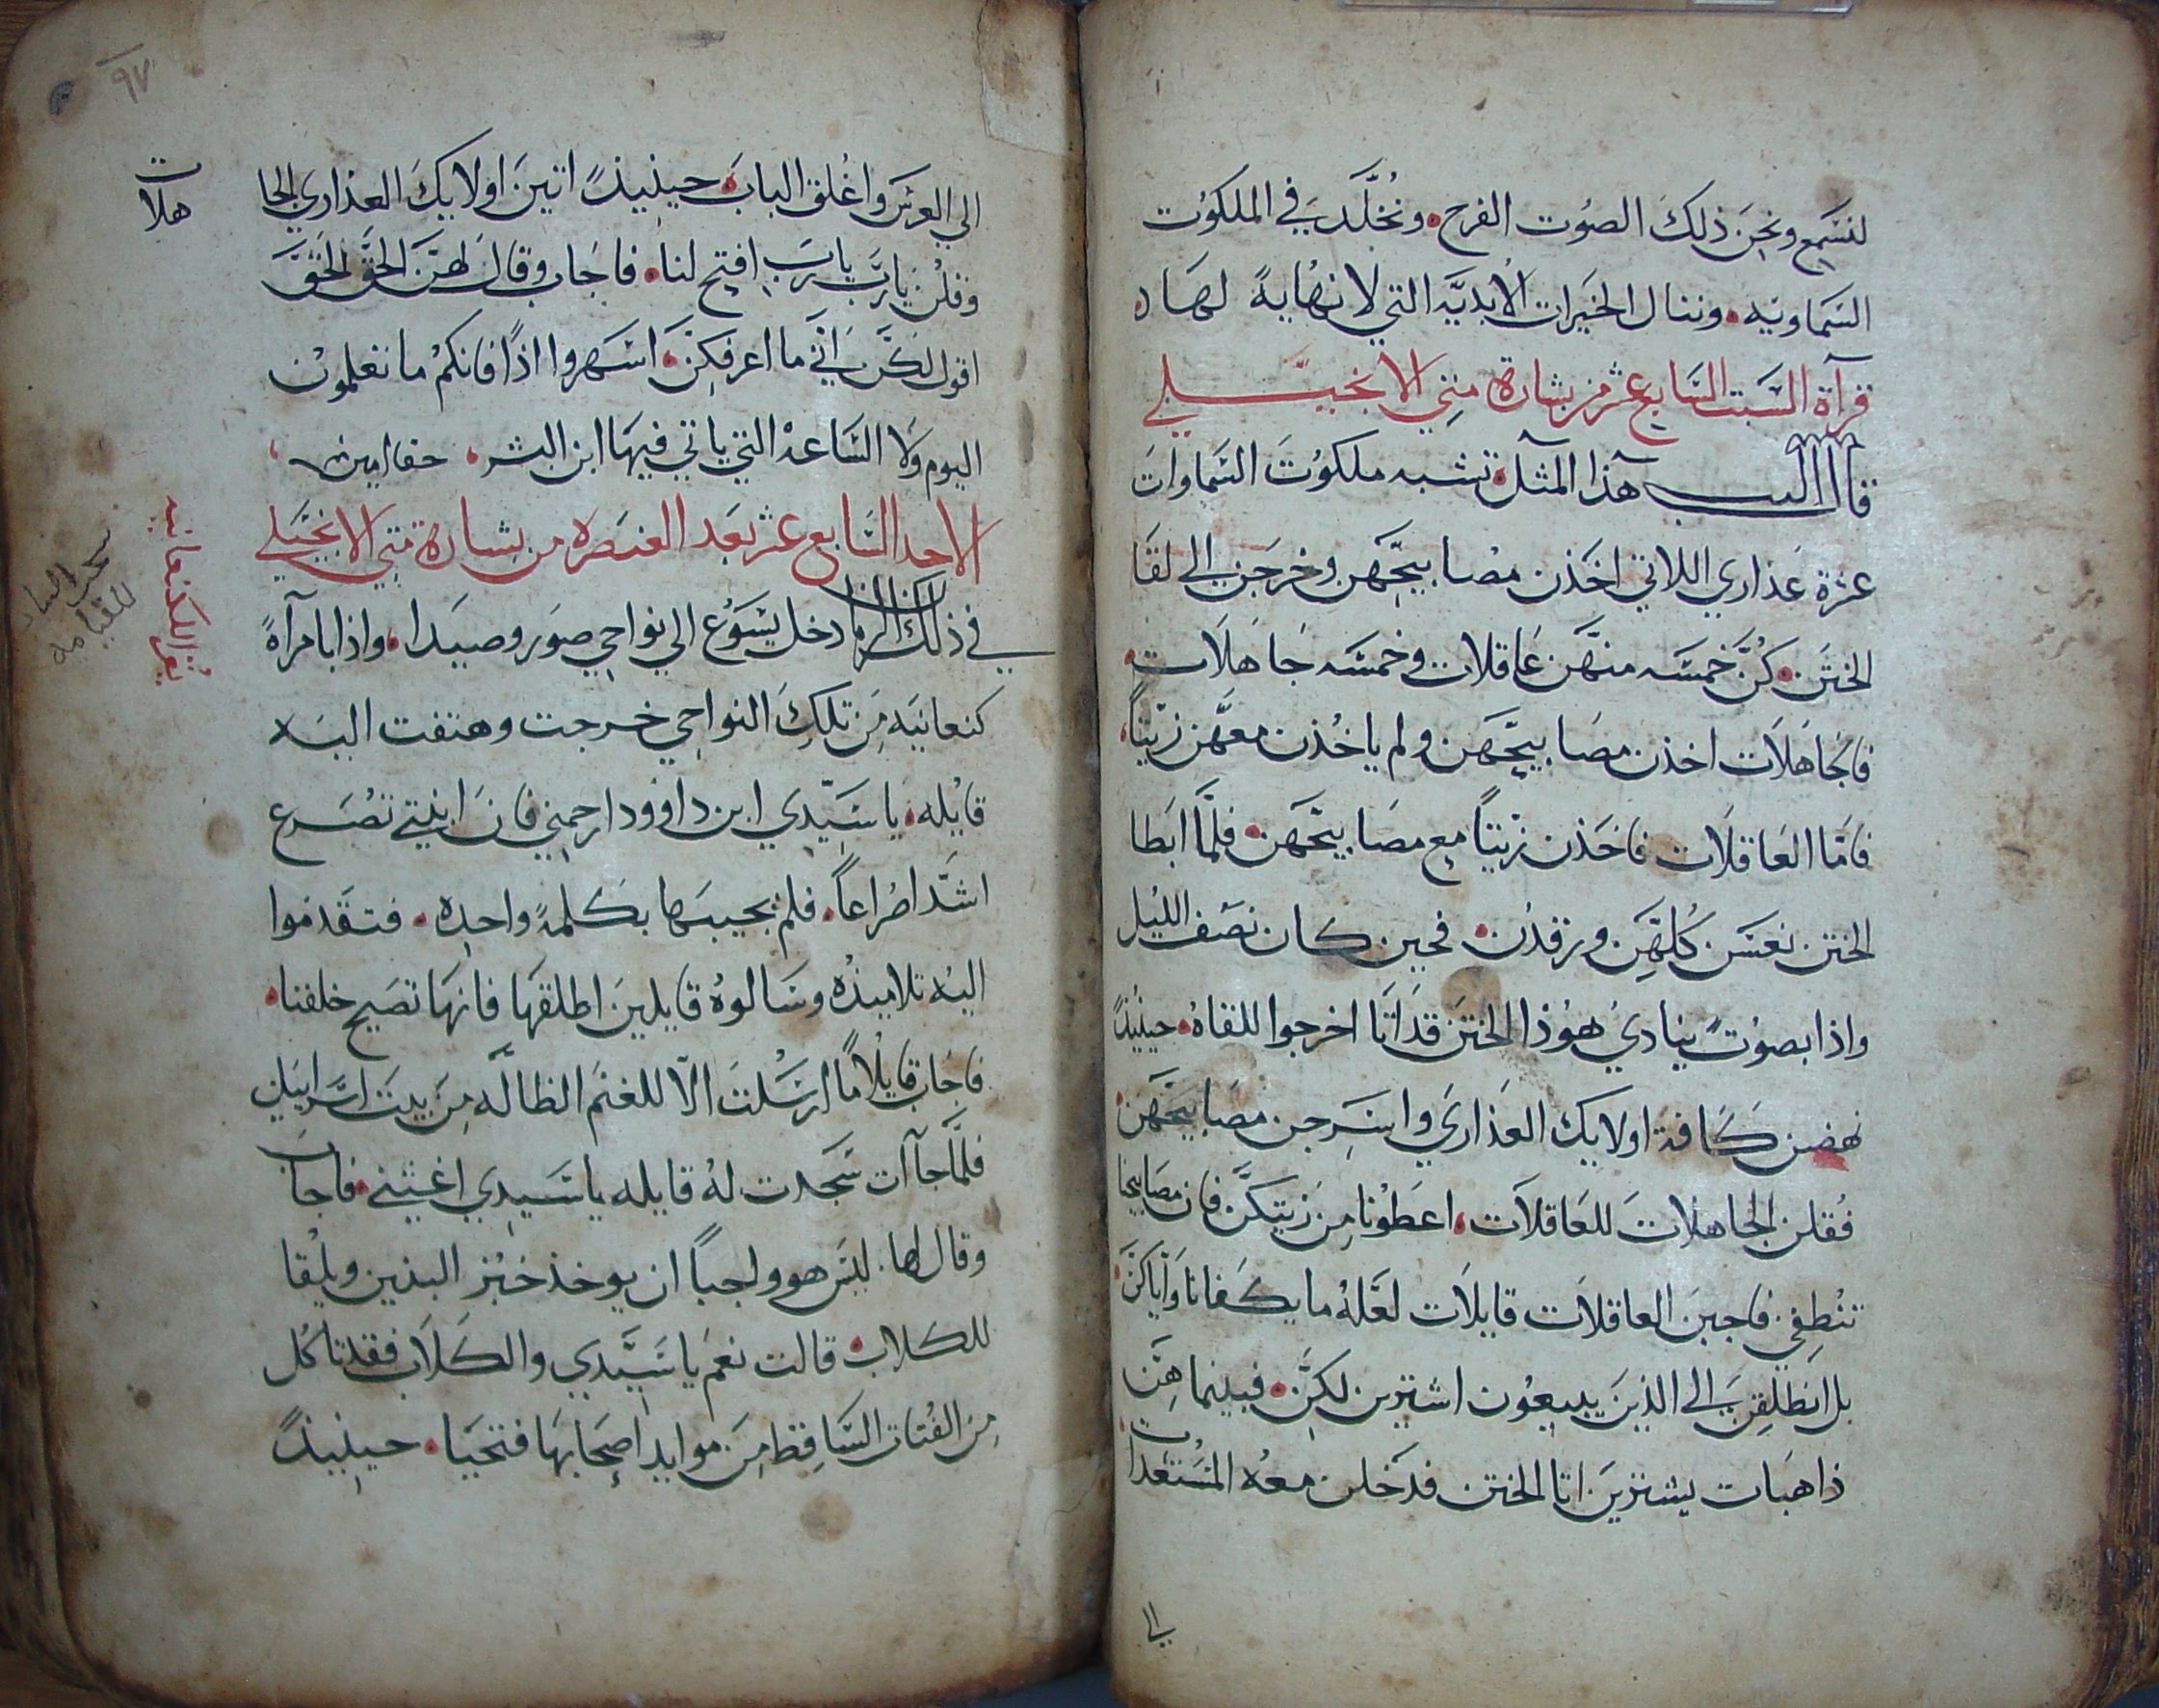 لنسمع ونحن ذلك الصوت الفرح. ونخلد في الملكوت
السماويه. وننال الخيرات الابديه التي لا نهاية لها ه
قرآة السبت السابع عشر من بشارة متي الانجيلي
قال الرب هذا المثل. تشبه ملكوت السماوات
عشرة عذاري اللاتي اخذن مصابيحهن وخرجن الي لقا
الختن. كن خمسه منهن عاقلات وخمسه جاهلات.
فالجاهلات اخذن مصابيحهن ولم ياخذن معهن زيتاً.
فاما العاقلات فاخذن زيتاً مع مصابيحهن. فلما ابطا
الختن نعسن كلهن ورقدن. فحين كان نصف الليل
واذا بصوت ينادي هوذا الختن قد اتا اخرجوا للقاه. حينيذً
نهضن كافة اولايك العذاري واسرجن مصابيحهن.
فقلن الجاهلات للعاقلات. اعطونا من زيتكن فان مصابيحنا
تنطفي. فاجبن العاقلات قايلات لعله ما يكفانا واياكن.
بل انطلقن الي الذين يبيعون اشترين لكن. فبينما هن
ذاهبات يشترين اتا الختن فدخلن معه المستعدات
الي
٩٧
الي العرس واغلق الباب. حينيذً اتين اولايك العذاري الجا
هلات
وقلن يارب يارب افتح لنا. فاجاب وقال لهن الحق الحق
اقول لكن اني ما اعرفكن. اسهروا اذاً فانكم ما تعلمون
اليوم ولا الساعة التي ياتي فيها ابن البشر. حقا امين
الاحد السابع عشر بعد العنصره من بشارة متي الانجيلي
في ذلك الزمان دخل يسوع الي نواحي صور وصيدا. واذا بامرآة
كنعانيه من تلك النواحي خرجت وهتفت اليه
قايله. يا سيدي ابن داوود ارحمني فان ابنتي تصرع
اشد اصراعاً. فلم يجيبها بكلمة واحده. فتقدموا
اليه تلاميذه وسالوه قايلين اطلقها فانها تصيح خلفنا.
فاجاب قايلاً ما ارسلت الا للغنم الظاله من بيت اسراييل
فلما جاآت سجدت له قايله يا سيدي اغثني. فاجاب
وقال لها. ليس هو واجباً ان يوخذ خبز البنين ويلقا
للكلاب. قالت نعم يا سيدي والكلاب فقد تاكل
من الفتات الساقط من موايد اصحابها فتحيا. حينيذً